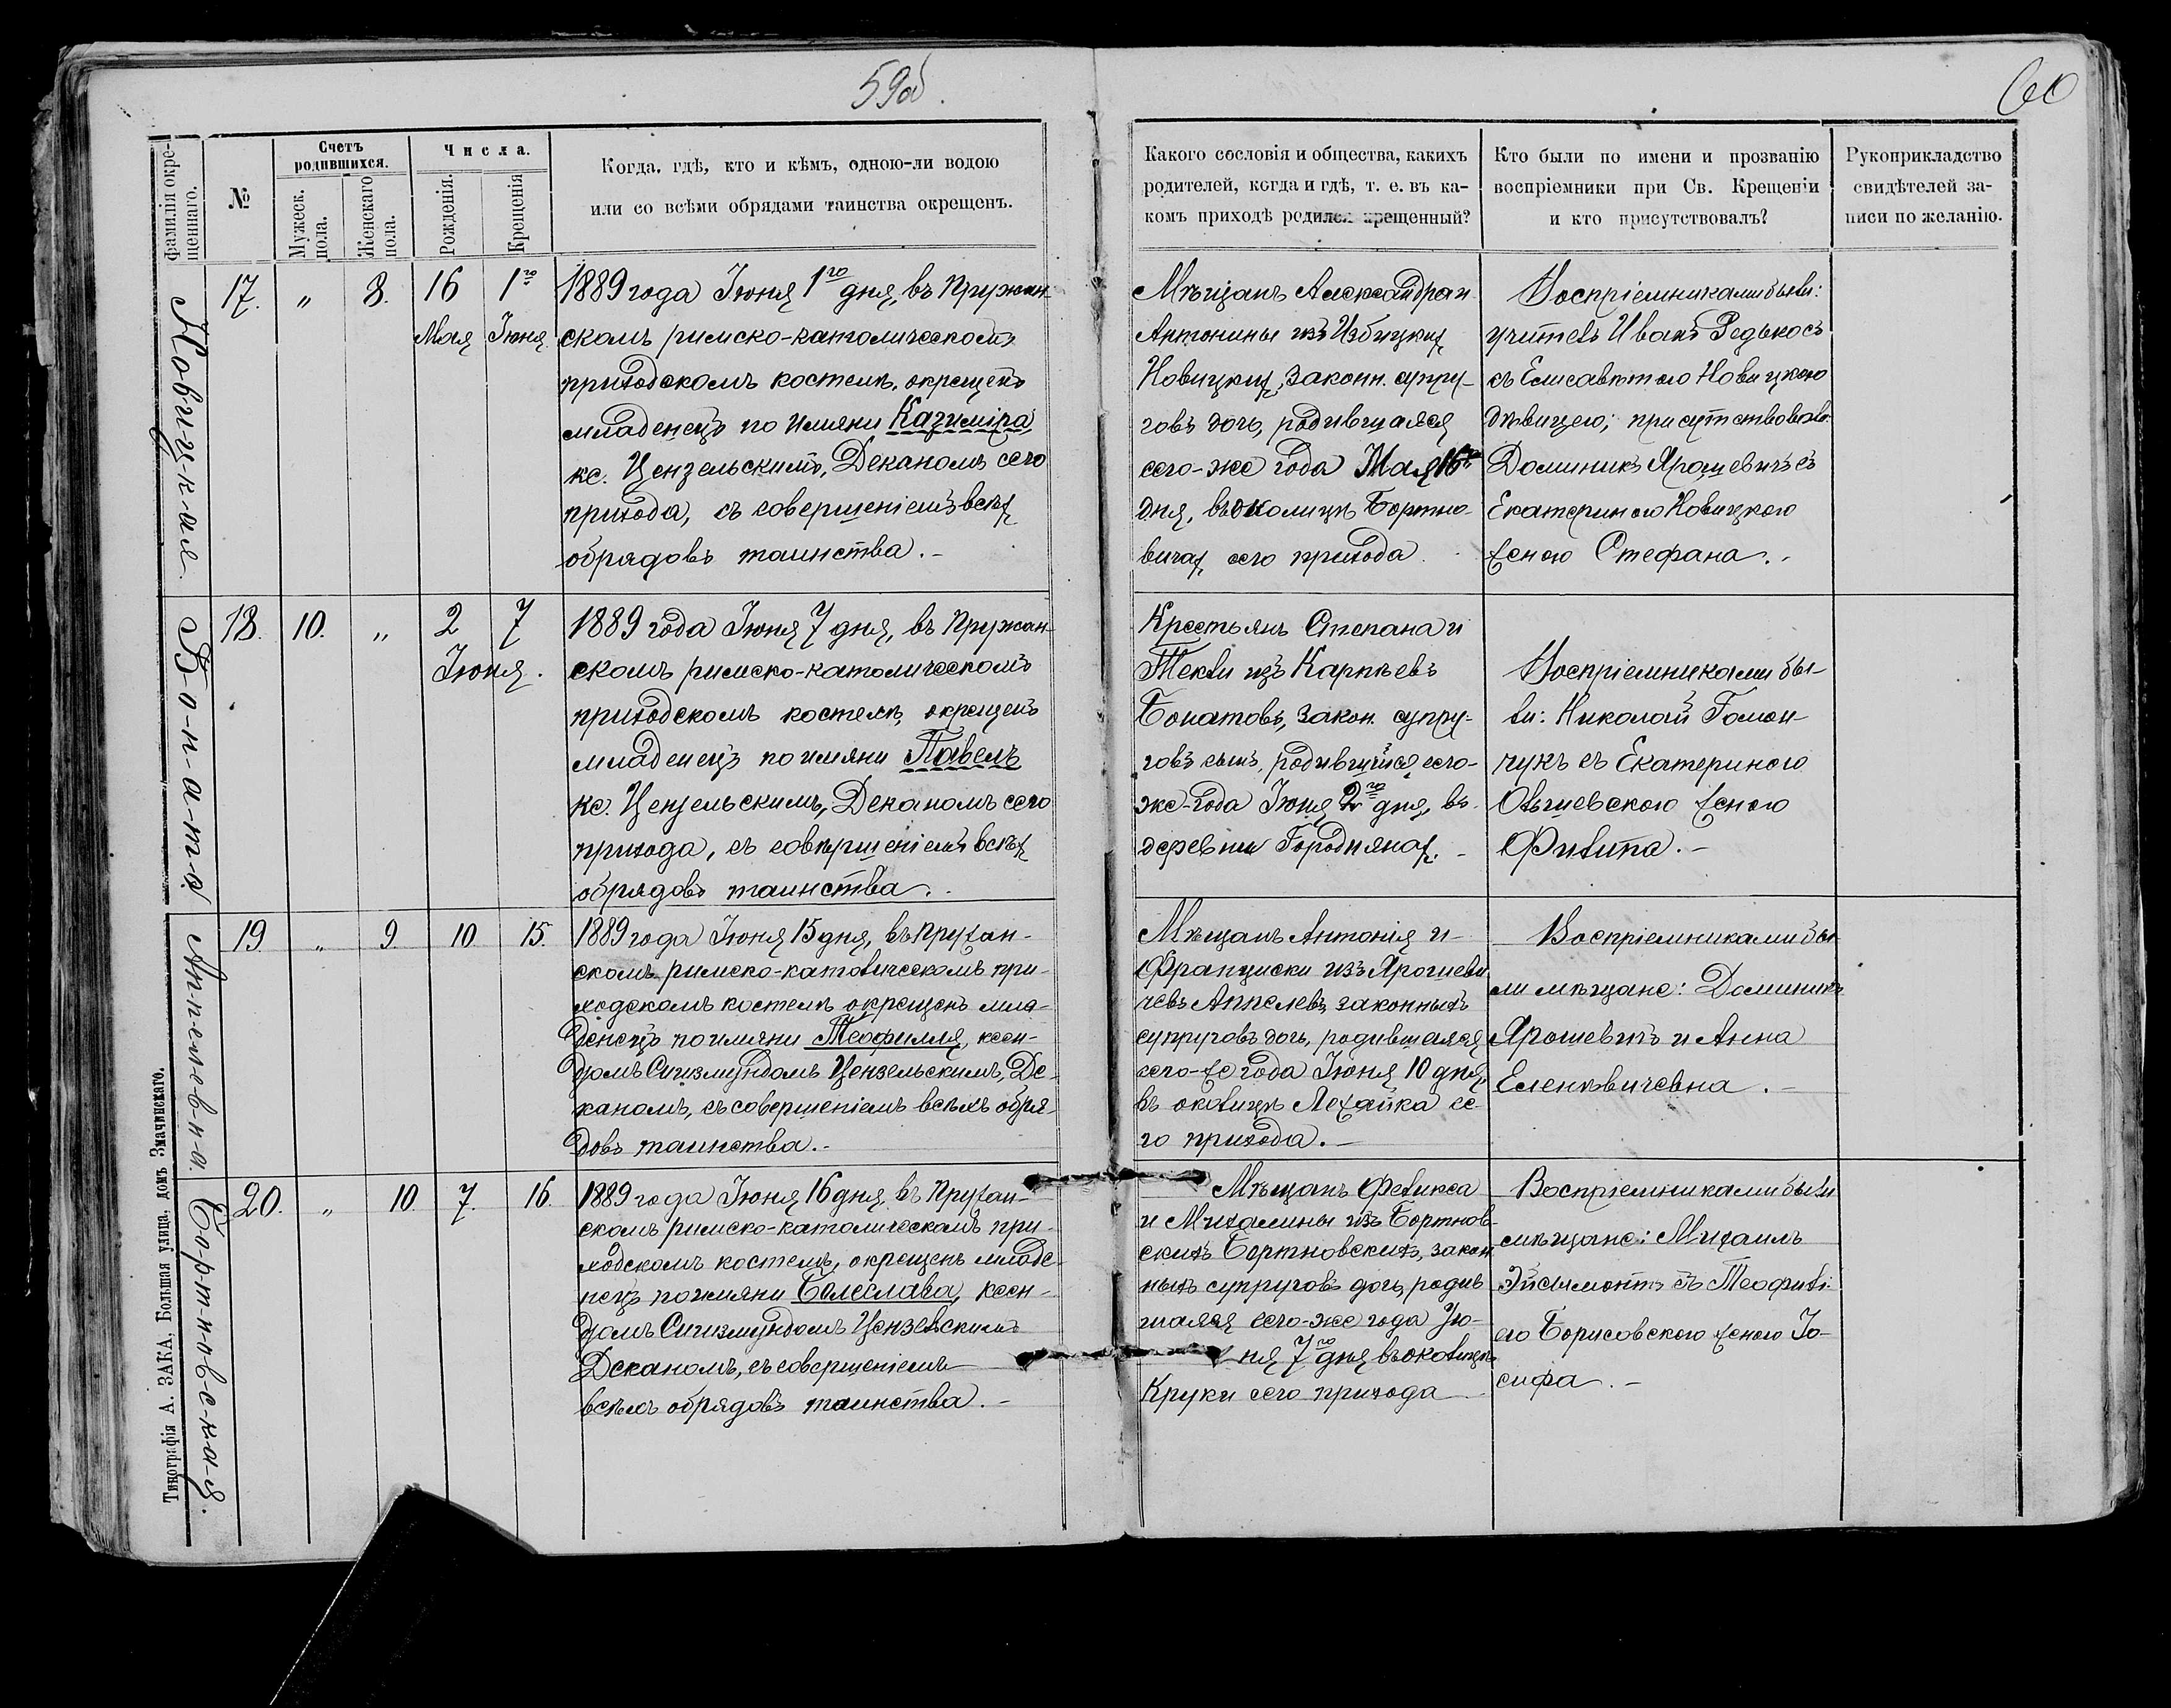 59об.
60
Фамилія окрещеннаго.
№
Счетъ родившихся.
Мужеск. пола.
Женскаго пола.
Числа.
Рожденія.
Крещенія
Когда, гдѣ, кто и кѣмъ, одною-ли водою
или со всѣми обрядами таинства окрещенъ.
Какого сословія и общества, какихъ
родителей, когда и гдѣ, т. е. въ ка-
комъ приходѣ родился крещенный?
Кто были по имени и прозванію
воспріемники при Св. Крещеніи
и кто присутствовалъ?
Рукоприкладство
свидѣтелей за-
писи по желанію.
Новицкая.
17. „ 8. 16 1го
Мая Іюня
1889 года Іюня 1го дня, въ Пружан-
скомъ римско-католическомъ
приходскомъ костелѣ, окрещенъ
младенецъ по имяни Казиміра,
кс. Цензельскимъ, Деканомъ сего
прихода, съ совершеніемъ всѣхъ
обрядовъ таинства.-
Мѣщанъ Александра и
Антонины изъ Избицкихъ
Новицкихъ, законн. супру-
говъ дочь, родившаяся
сего-же года Мая 16го
дня, въ околицѣ Бортно-
вичахъ сего прихода.
Воспріемниками были:
учитель Иванъ Редькосъ
съ Елисаветою Новицкою
дѣвицею; присутствовали
Доминикъ Ярошевичъ съ
Екатериною Новицкою
женою Стефана.-
Бонатъ
18. 10. „ 2 7
Іюня.
1889 года Іюня 7 дня, въ Пружан-
скомъ римско-католическомъ
приходскомъ костелѣ, окрещенъ
младенецъ по имяни Павелъ
кс. Цензельскимъ, Деканомъ сего
прихода, съ совѣршеніемъ всѣхъ
обрядовъ таинства.-
Крестьянъ Степана и
Текли изъ Карпѣевъ
Бонатовъ, закон. супру-
говъ сынъ, родившійся сего-
же-года Іюня 2го дня, въ
деревни Городнянахъ.-
Воспріемниками бы-
ли: Николай Гомон-
чукъ съ Екатериною
Ольшевскою женою
Филипа.-
Аппелевна.
19 „ 9 10 15.
1889 года Іюня 15 дня, въ Пружан-
скомъ римско-католическомъ при-
ходскомъ костелѣ окрещенъ мла-
денецъ по имяни Теофилля, ксен-
дзомъ Сигизмундомъ Цензельскимъ, Де-
каномъ, съ совершеніемъ всѣхъ обря-
довъ таинства.-
Мѣщанъ Антонія и
Франциски изъ Ярошеви-
чевъ Аппелевъ, законныхъ
супруговъ дочь, родившаяся
сего-же года Іюня 10 дня,
въ околицѣ Лежайка се-
го прихода.-
Воспріемниками бы-
ли мѣщане: Доминикъ
Ярошевичъ и Анна
Еленѣвичевна.-
Бортновская.
20. „ 10 7. 16.
1889 года Іюня 16 дня, въ Пружан-
скомъ римско-католическомъ при-
ходскомъ костелѣ, окрещенъ младе-
нецъ по имяни Болеслава, ксен-
дзомъ Сигизмундомъ Цензельскимъ
Деканомъ, съ совершеніемъ
всѣхъ обрядовъ таинства.-
Мѣщанъ Феликса
и Михалины изъ Бортнов-
скихъ Бортновскихъ, закон-
ныхъ супруговъ дочь, родив-
шаяся сего-же года Ію-
ня 7го дня въ околицѣ
Круки сего прихода
Воспріемниками были
мѣщане: Михаилъ
Эйсымонтъ съ Теофилі-
ею Борисовскою женою Іо-
сифа.-
Типографія А. ЗАКА, Большая улица, домъ Значинскаго.